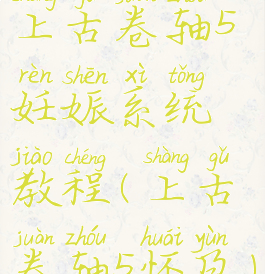 上古卷轴5
rèn shēn xì tǒng
妊娠系统
jiào chéng shàng gǔ
教程(上古
juàn zhóu huái yùn
卷轴5怀孕)